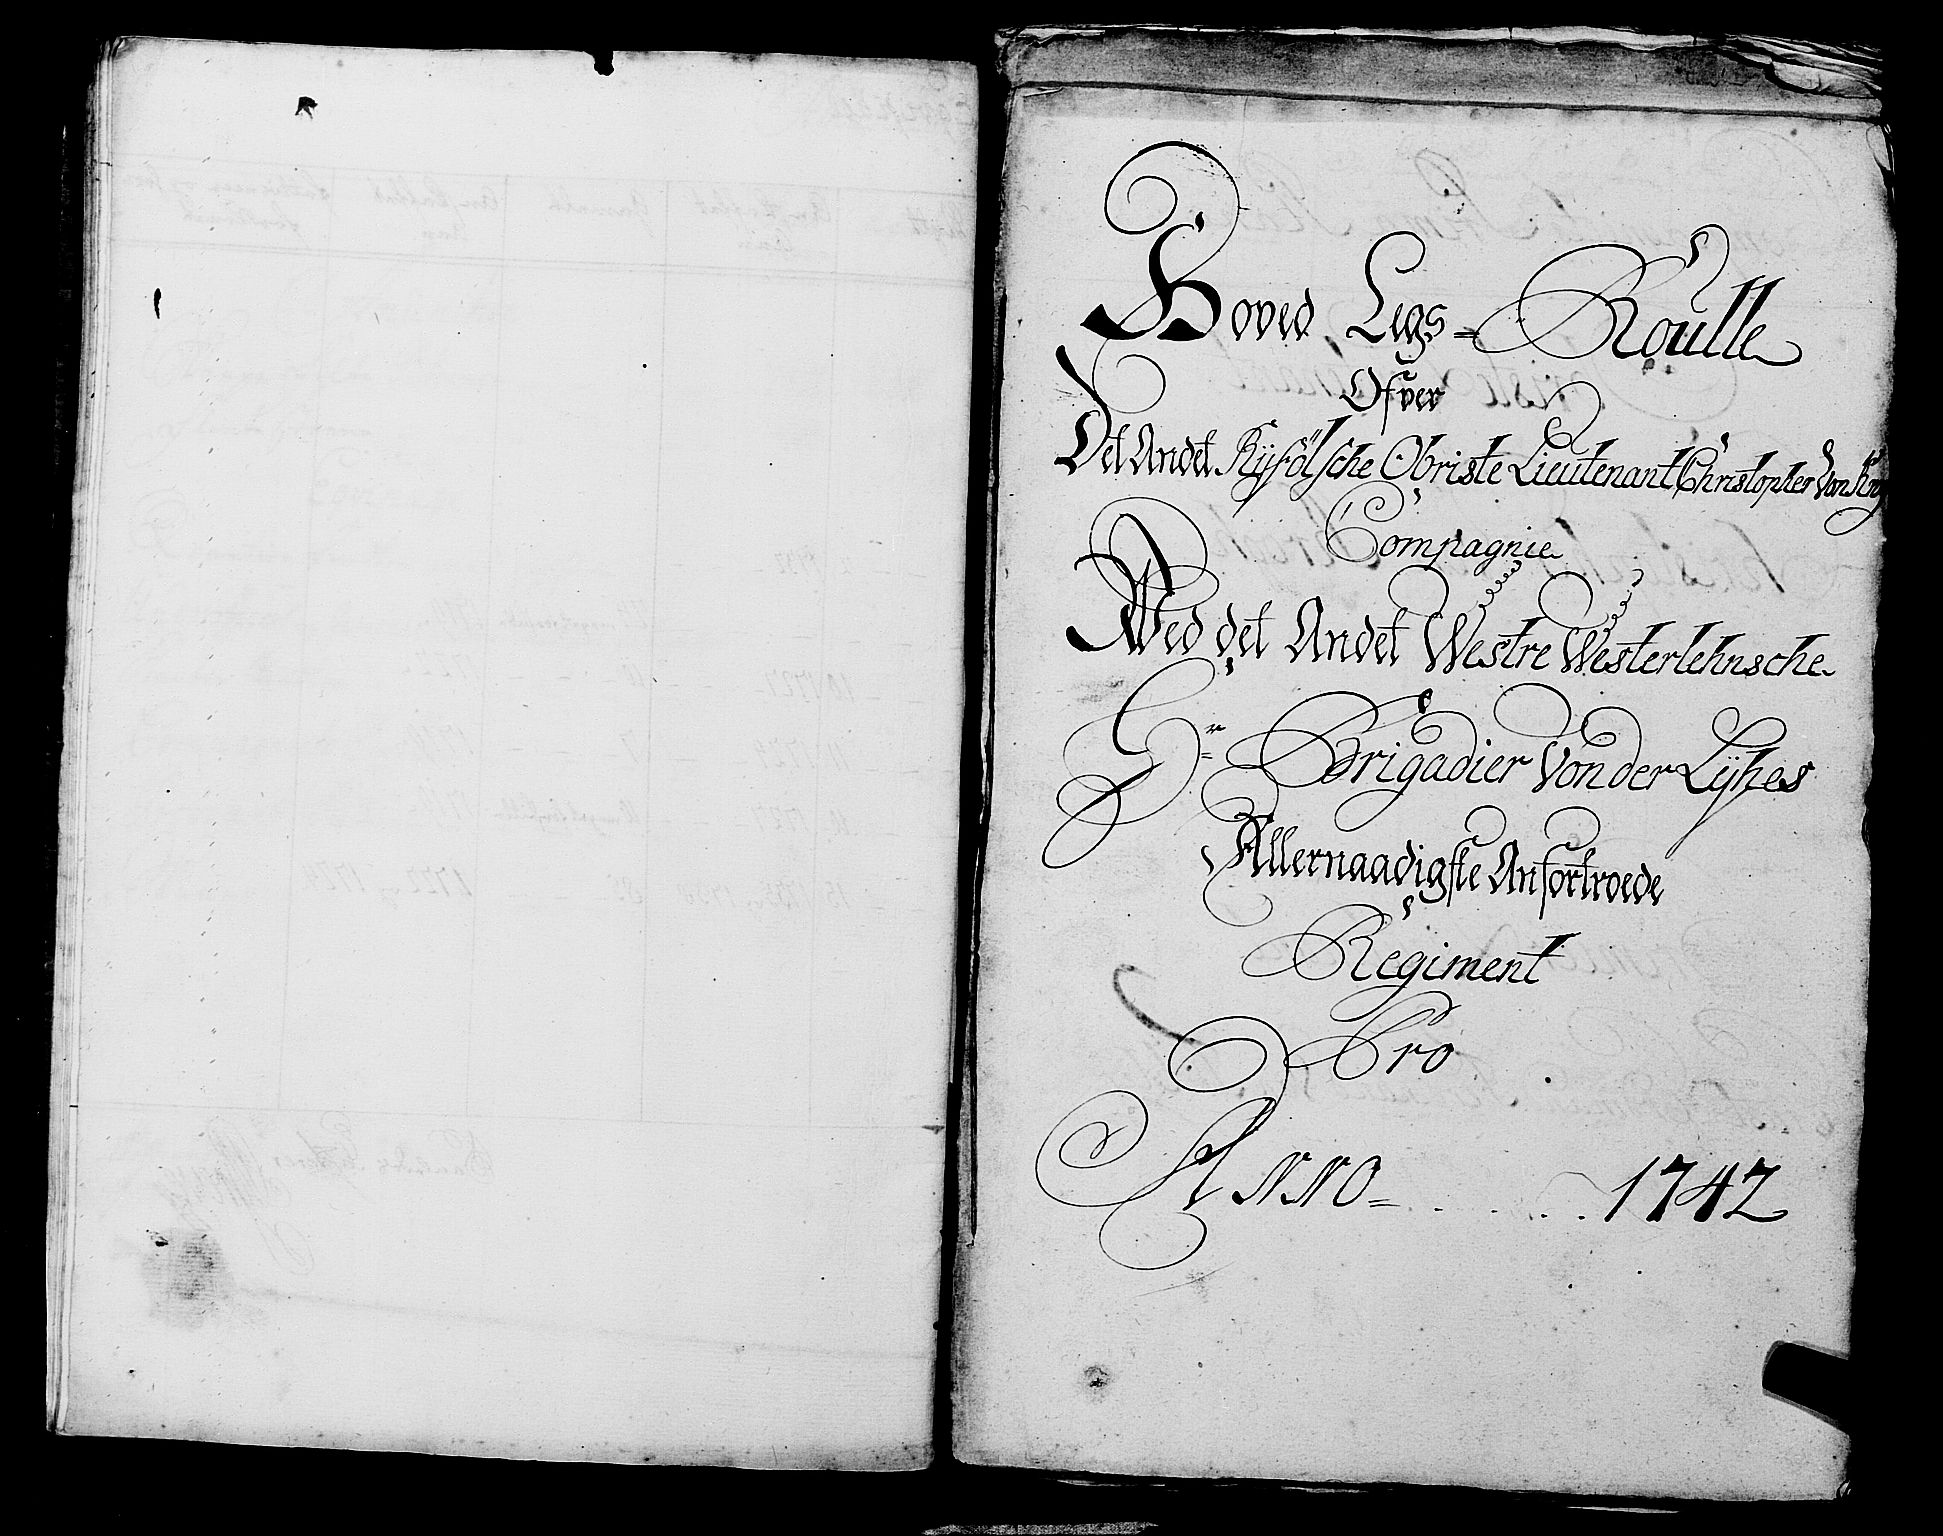 Hoved Legs= Roulle
Ofver
Det Andet Ryfölsche Obriste Lieutenant Christopher Von
Compagnie
Wed det Andet Westre Westerlehnsche
Hr Brigadier Von der Lyhes
Allernaadigste Anfortroede
Regiment
Pro
Anno= . . . . . . 1742